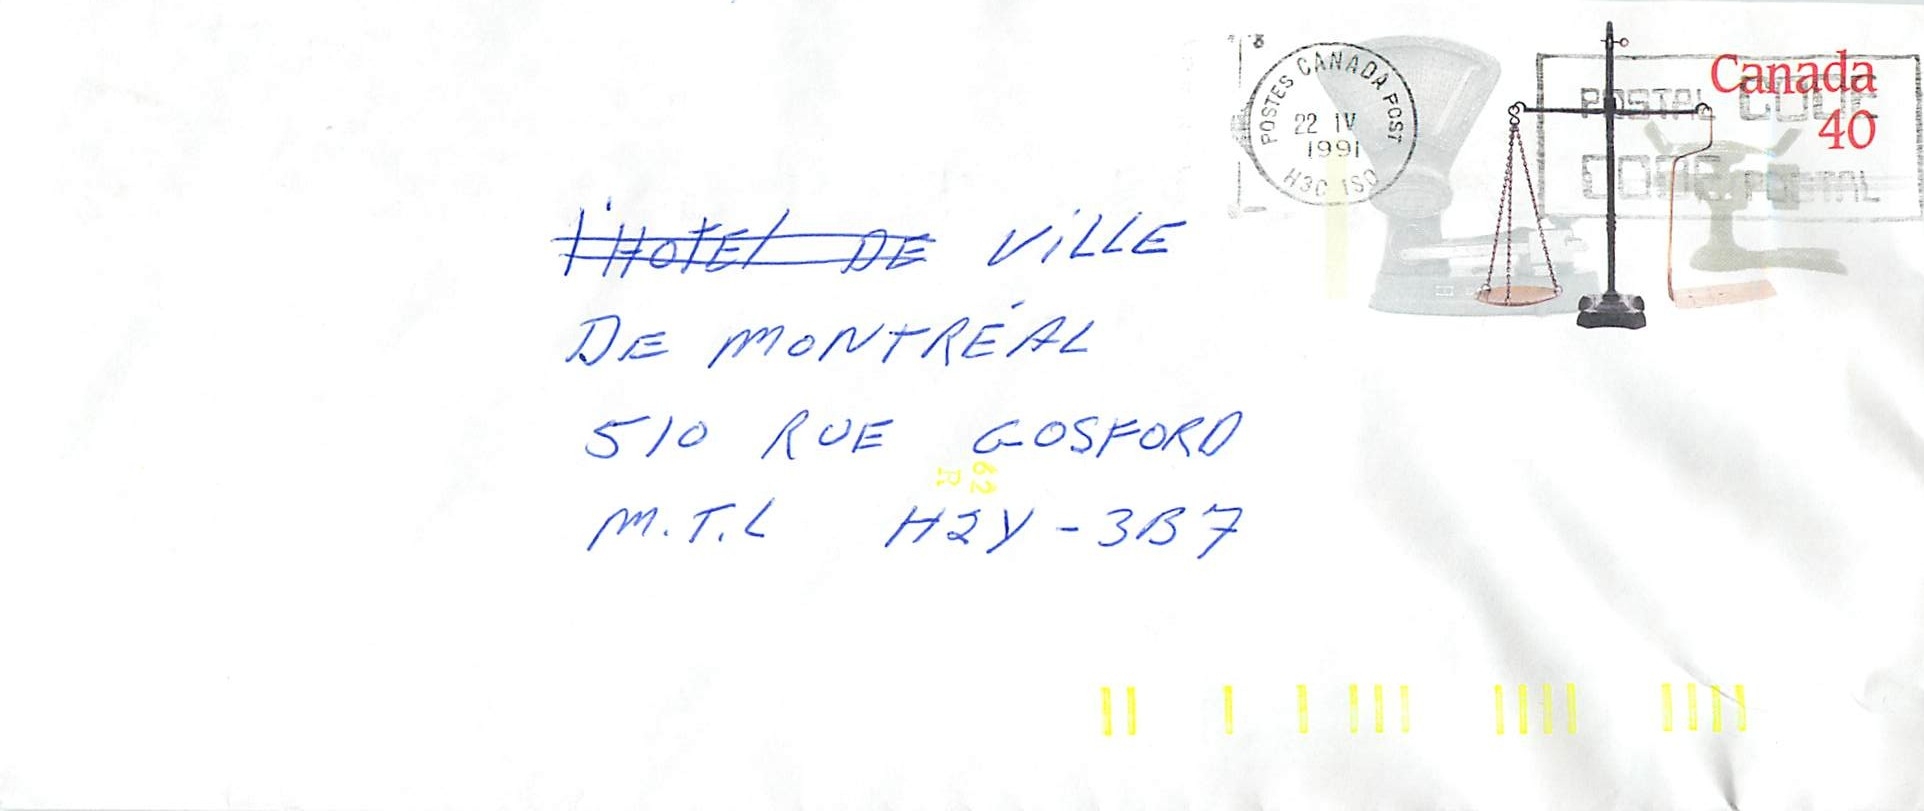 POSTES CANADA POST
22 IV
1991
H3C 1S0
Canada
40
POSTAL CODE
CODE POSTAL
l'HOTEL DE VILLE
DE MONTRÉAL
510 RUE GOSFORD
62
R
M.T.L H2Y-3B7